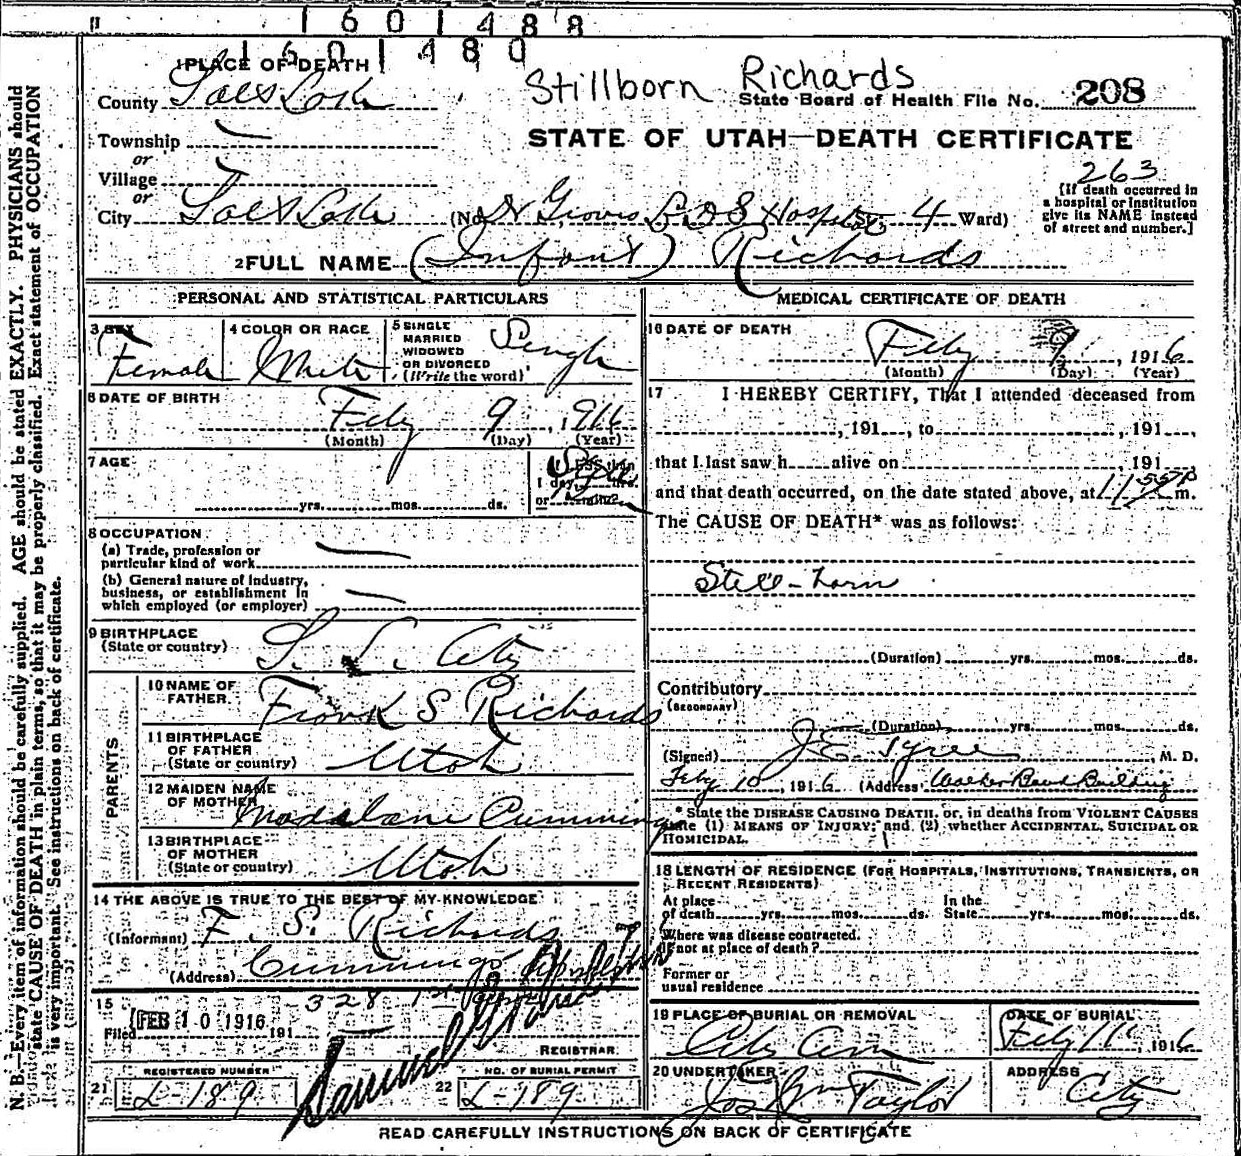 1 6 0 1 4 8 8
1 6 0 1 4 8 0
PLACE OF DEATH
Stillborn Richards
County Salt Lake
State Board of Health File No. 208
Township
or
STATE OF UTAH—DEATH CERTIFICATE
Village
or
263
City Salt Lake (No. Dr Groves L D S Hospital St. 4 Ward)
[If death occurred in
a hospital or institution
give its NAME instead
of street and number.]
2 FULL NAME (Infant) Richards
PERSONAL AND STATISTICAL PARTICULARS
3 SEX Female
4 COLOR OR RACE White
5 SINGLE
MARRIED
WIDOWED
OR DIVORCED
(Write the word) Single
6 DATE OF BIRTH
Feby 9, 1916
(Month) (Day) (Year)
7 AGE
yrs. mos. ds.
If LESS than
1 day, hrs.
or min?
8 OCCUPATION
(a) Trade, profession or
particular kind of work
(b) General nature of industry,
business, or establishment in
which employed (or employer)
9 BIRTHPLACE
(State or country) S. L. City
PARENTS
10 NAME OF
FATHER Frank S Richards
11 BIRTHPLACE
OF FATHER
(State or country) Utah
12 MAIDEN NAME
OF MOTHER Madalane Cummings
13 BIRTHPLACE
OF MOTHER
(State or country) Utah
14 THE ABOVE IS TRUE TO THE BEST OF MY KNOWLEDGE
(Informant) F. S. Richards
(Address) Cummings
328 1st
15
Filed FEB 10 1916 191
Samuel G
REGISTRAR
REGISTERED NUMBER
21 L-189
NO. OF BURIAL PERMIT
22 L-189
MEDICAL CERTIFICATE OF DEATH
16 DATE OF DEATH
Feby 9, 1916
(Month) (Day) (Year)
17 I HEREBY CERTIFY, That I attended deceased from
, 191 , to , 191 ,
that I last saw h alive on , 191
and that death occurred, on the date stated above, at 11 55 P m.
The CAUSE OF DEATH* was as follows:
Still-born
(Duration) yrs. mos. ds.
Contributory
(SECONDARY)
(Duration) yrs. mos. ds.
(Signed) J. E. Tyree M. D.
Feby 10, 1916 (Address) Walker Bank Building
* State the DISEASE CAUSING DEATH, or, in deaths from VIOLENT CAUSES
state (1) MEANS OF INJURY; and (2) whether ACCIDENTAL, SUICIDAL OR
HOMICIDAL.
18 LENGTH OF RESIDENCE (FOR HOSPITALS, INSTITUTIONS, TRANSIENTS, OR
RECENT RESIDENTS)
At place
of death yrs. mos. ds.
In the
State yrs. mos. ds.
Where was disease contracted.
if not at place of death?
Former or
usual residence
19 PLACE OF BURIAL OR REMOVAL
City Cem
DATE OF BURIAL
Feby 11, 1916
20 UNDERTAKER
Jos Wm Taylor
ADDRESS
City
READ CAREFULLY INSTRUCTIONS ON BACK OF CERTIFICATE
N. B.—Every item of information should be carefully supplied. AGE should be stated EXACTLY. PHYSICIANS should
state CAUSE OF DEATH in plain terms, so that it may be properly classified. Exact statement of OCCUPATION
is very important. See instructions on back of certificate.